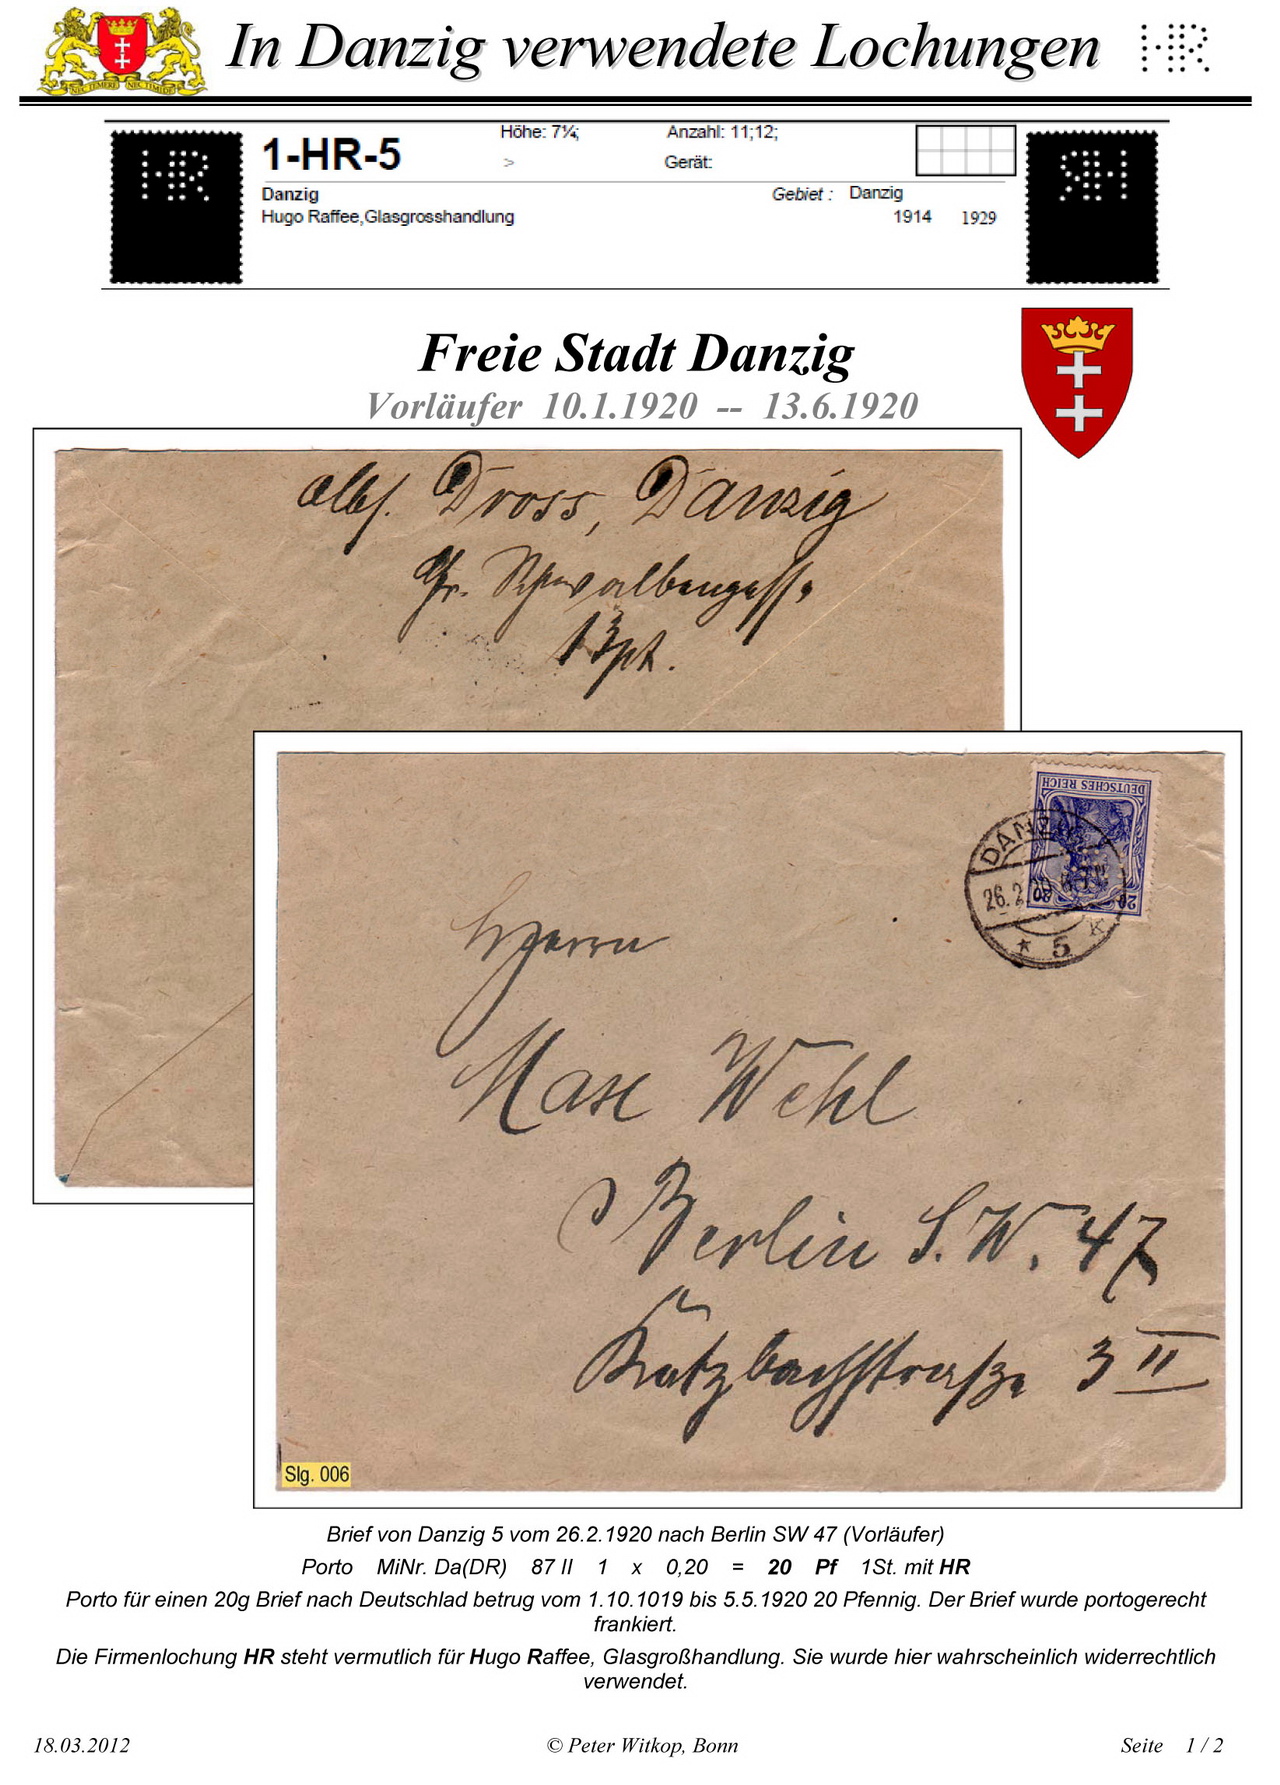 In Danzig verwendete Lochungen
HR
NEC TEMERE NEC TIMIDE
1-HR-5
Höhe: 7¼;
Anzahl: 11;12;
>
Gerät:
Danzig
Gebiet : Danzig
Hugo Raffee,Glasgrosshandlung
1914 1929
HR
Freie Stadt Danzig
Vorläufer 10.1.1920 -- 13.6.1920
Abs. Dross, Danzig
Gr. Schwalbengasse
13 pt.
DEUTSCHES REICH
20 20
DANZ
26.2
* 5 K
Herrn
Max Wehl
Berlin S.W. 47
Katzbachstraße 3 II
Slg. 006
Brief von Danzig 5 vom 26.2.1920 nach Berlin SW 47 (Vorläufer)
Porto MiNr. Da(DR) 87 II 1 x 0,20 = 20 Pf 1St. mit HR
Porto für einen 20g Brief nach Deutschlad betrug vom 1.10.1019 bis 5.5.1920 20 Pfennig. Der Brief wurde portogerecht
frankiert.
Die Firmenlochung HR steht vermutlich für Hugo Raffee, Glasgroßhandlung. Sie wurde hier wahrscheinlich widerrechtlich
verwendet.
18.03.2012
© Peter Witkop, Bonn
Seite 1 / 2